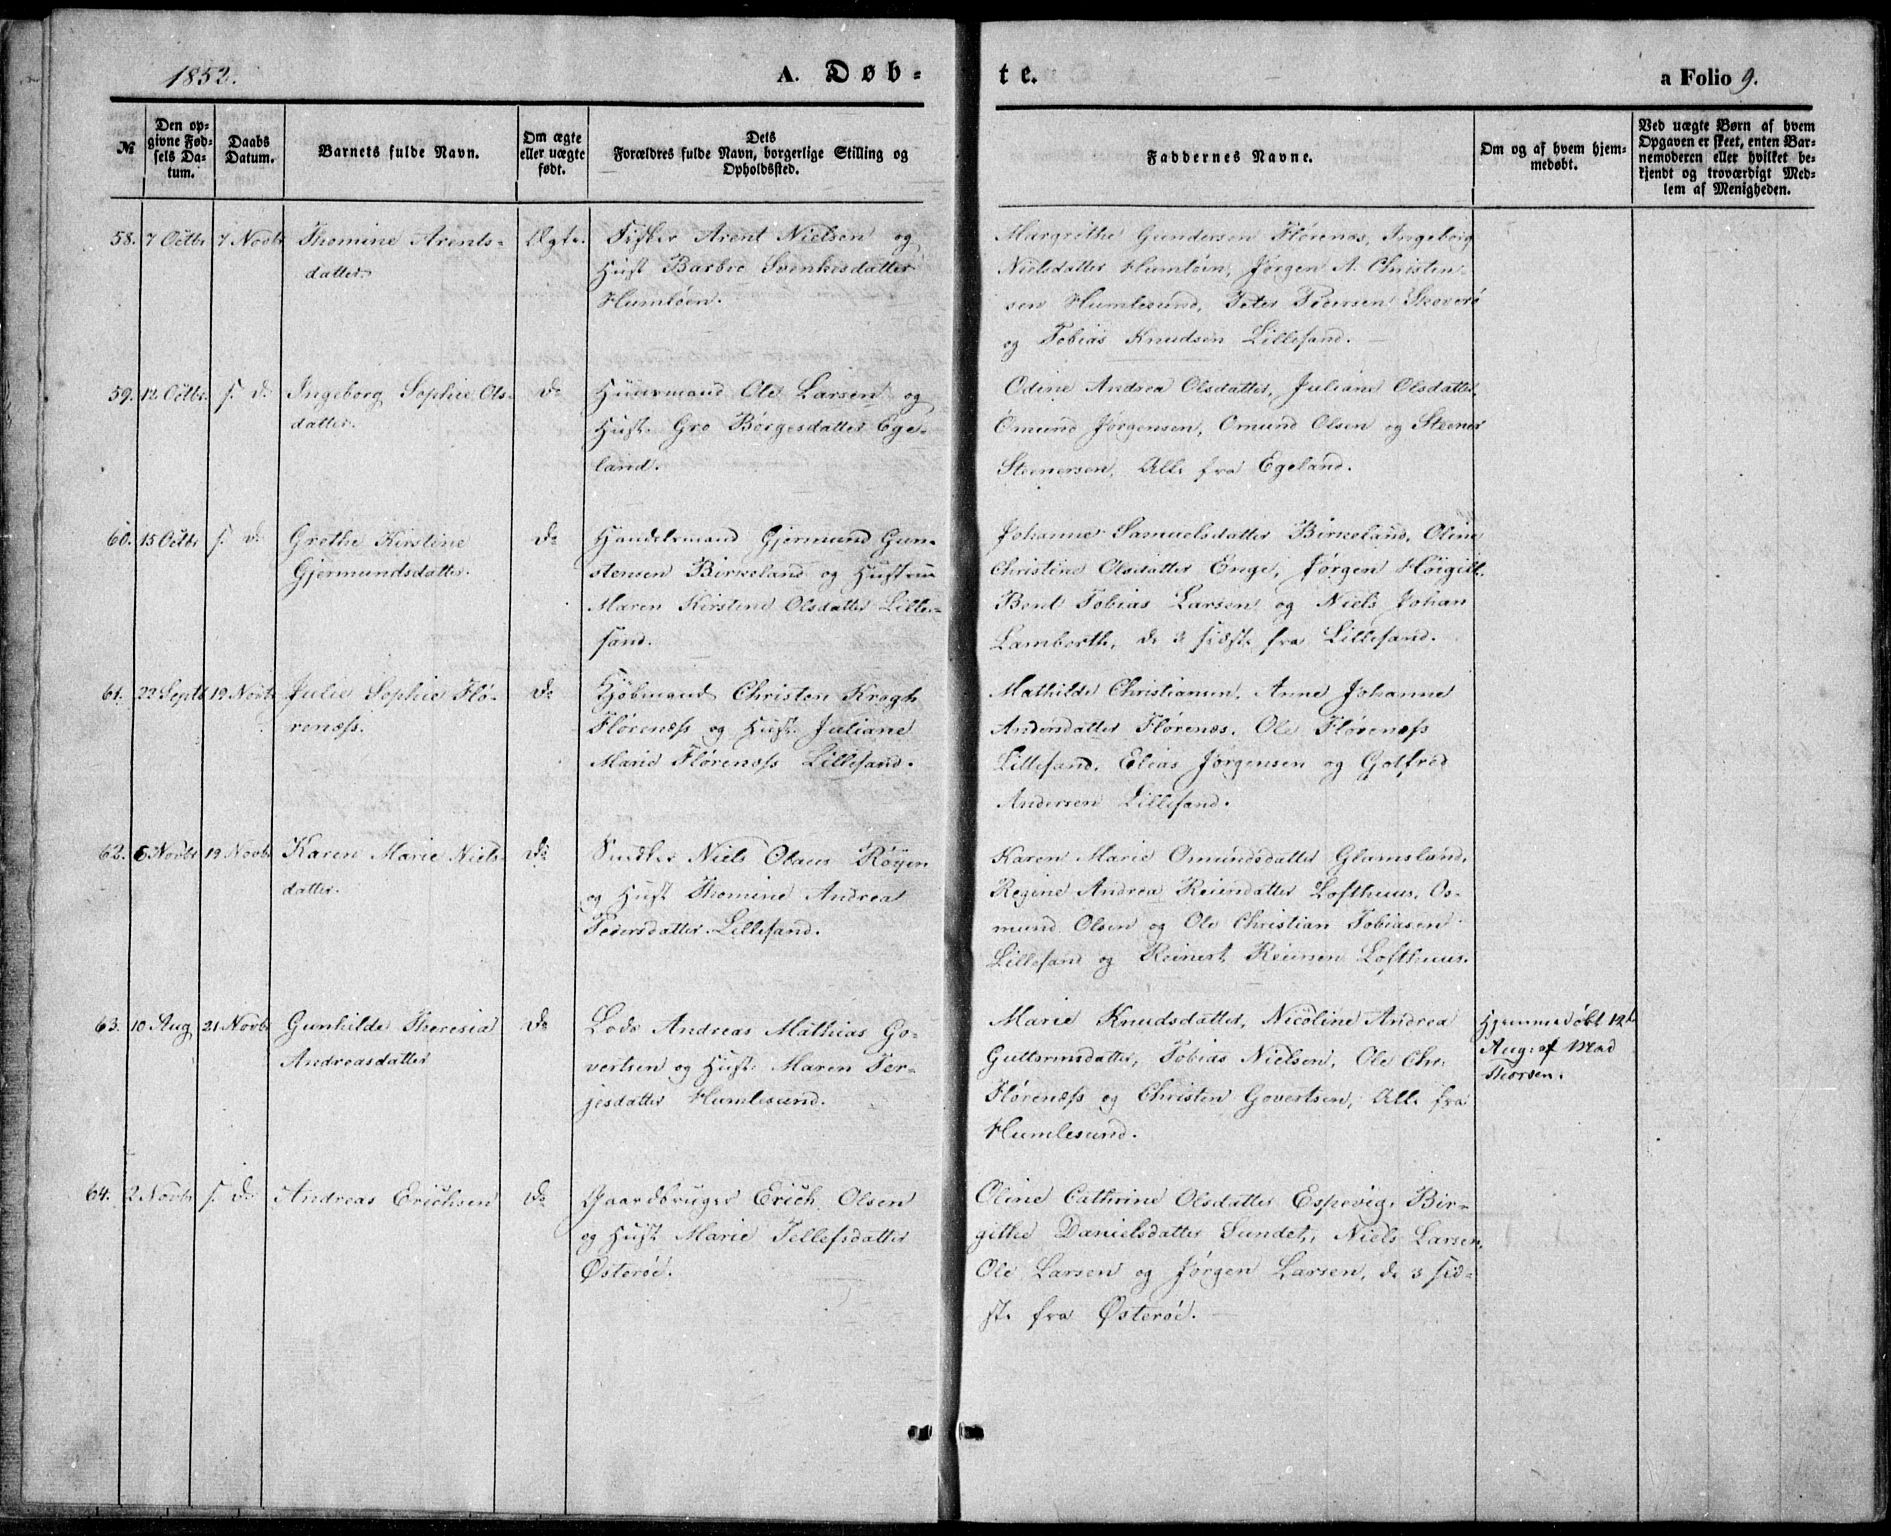 1852.
A. Døb-
te.
a Folio 9.
№
Den op-
givne Fød-
sels Da-
tum.
Daabs
Datum.
Barnets fulde Navn.
Om ægte
eller uægte
født.
Dets
Forældres fulde Navn, borgerlige Stilling og
Opholdssted.
Faddernes Navne.
Om og af hvem hjem-
medøbt.
Ved uægte Børn af hvem
Opgaven er skeet, enten Bar-
nemoderen eller hvilket be-
kjendt og troværdigt Med-
lem af Menigheden.
58. 7 Octbr 7 Novbr Thomine Arents-
datter.
Ægte.
Fisker Arent Nielsen og
Hust Barbro Svenkesdatter
Humløen.
Margrethe Gundersen Flørenæs, Ingeborg
Nielsdatter Humløen, Jørgen A. Christen-
sen Humlesund, Peter Pedersen Skoverö
og Tobias Knudsen Lillesand.
59. 12 Octbr. s. d. Ingeborg Sophie Ols-
datter.
do
Huusmand Ole Larsen og
Hust. Gro Börgesdatter Ege-
land.
Odine Andrea Olsdatter, Juliane Olsdatter,
Omund Jørgensen, Omund Olsen og Steener
Steenersen, Alle fra Egeland.
60. 15 Octbr s. d. Grethe Kirstine
Gjermundsdatter.
do
Handelsmand Gjermund Gun-
stensen Birkeland og Hustrue
Maren Kirstine Olsdatter Lille-
sand.
Johanne Samuelsdatter Birkeland, Oline
Christine Olsdatter Enge, Jørgen
Bent Tobias Larsen og Niels Johan
Lamberth, de 3 sidste fra Lillesand.
61. 22 Septb 19 Novbr Julie Sophie Flø-
renæss.
do
Kjøbmand Christen Krogh
Flørenæss og Hust. Juliane
Marie Flørenæss Lillesand.
Mathilde Christiansen, Anne Johanne
Andersdatter Flørenæs. Ole Flørenæss
Lillesand, Elias Jørgensen og Gotfred
Andersen Lillesand.
62. 6 Novbr 19 Novbr Karen Marie Niels-
datter.
do
Snedker Niels Olaus Röyen
og Hust Thomine Andrea
Pedersdatter Lillesand.
Karen Marie Omundsdatter Glamsland,
Regine Andrea Reiersdatter Lofthuus, Os-
mund Olsen og Ole Christian Tobiasen
Lillesand og Reinert Reiersen Lofthuus.
63. 10 Aug 21 Novbr Gunhilde Theresia
Andreasdatter
do
Lods Andreas Mathias Go-
vertsen og Hust. Maren Ter-
jesdatter Humlesund.
Marie Knudsdatter, Nicoline Andrea
Guttormsdatter, Tobias Nielsen, Ole Chr.
Flørenæss og Christen Govertsen, Alle fra
Humlesund.
Hjemmedøbt 12te
Aug: af Mad
Thorsen.
64. 2 Novbr s. d. Andreas Erichsen
do
Gaardbruger Erich Olsen
og Hust Marie Tellefsdatter
Østeröe.
Oline Cathrine Olsdatter Espevig, Bir-
githe Danielsdatter Sundet, Niels Larsen,
Ole Larsen og Jørgen Larsen, de 3 sid-
ste fra Østeröe.